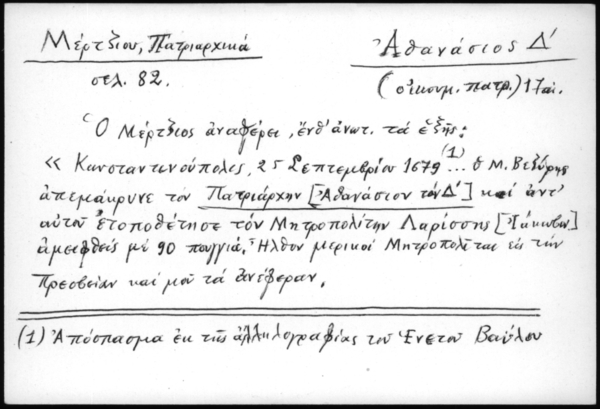 Μέρτζιου, Πατριαρχικά
Ἀθανάσιος Δ'
σελ. 82.
(οἰκουμ. πατρ.) 17 αἰ.
Ὁ Μέρτζιος ἀναφέρει, ἔνθ' ἀνωτ. τά ἑξῆς:
« Κωνσταντινούπολις, 25 Σεπτεμβρίου 1679 (1) ... ὁ Μ. Βεζύρης
ἀπεμάκρυνε τόν Πατριάρχην [Ἀθανάσιον τόν Δ'] καί ἀντ'
αὐτοῦ ἐτοποθέτησε τόν Μητροπολίτην Λαρίσσης [Ἰάκωβον]
ἀμειφθείς μέ 90 πουγγιά. Ἦλθον μερικοί Μητροπολῖται εἰς τήν
Πρεσβείαν καί μοῦ τά ἀνέφεραν.
(1) Ἀπόσπασμα ἐκ τῆς ἀλληλογραφίας τοῦ Ἑνετοῦ Βαΰλου